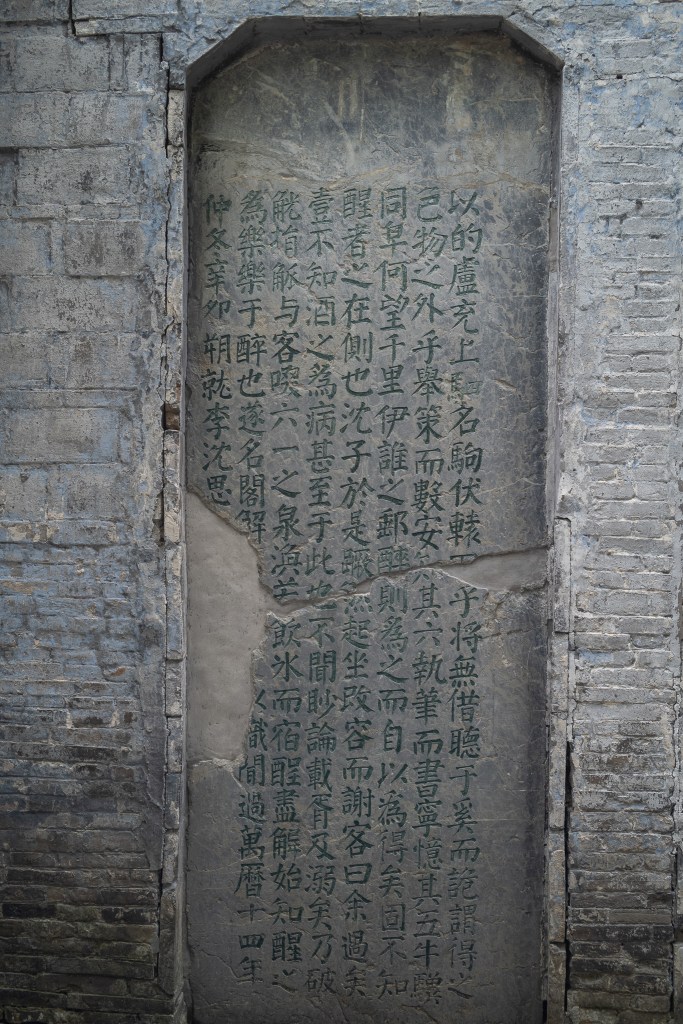 以的盧充上駟名駒伏轅乎將無借聽于奚而詭謂得之
己物之外乎舉策而數安其六執筆而書寧憶其五牛驥
同皁何望千里伊誰之郵醉則為之而自以為得矣固不知
醒者之在側也沈子於是蹶然起坐改容而謝客曰余過矣
壹不知酒之為病甚至于此也不聞眇論載胥及溺矣乃破
觥捐觚与客啜六一之泉飲氷而宿酲盡解始知醒之
為樂樂于醉也遂名閣解以識間過萬曆十四年
仲冬辛卯朔就李沈思